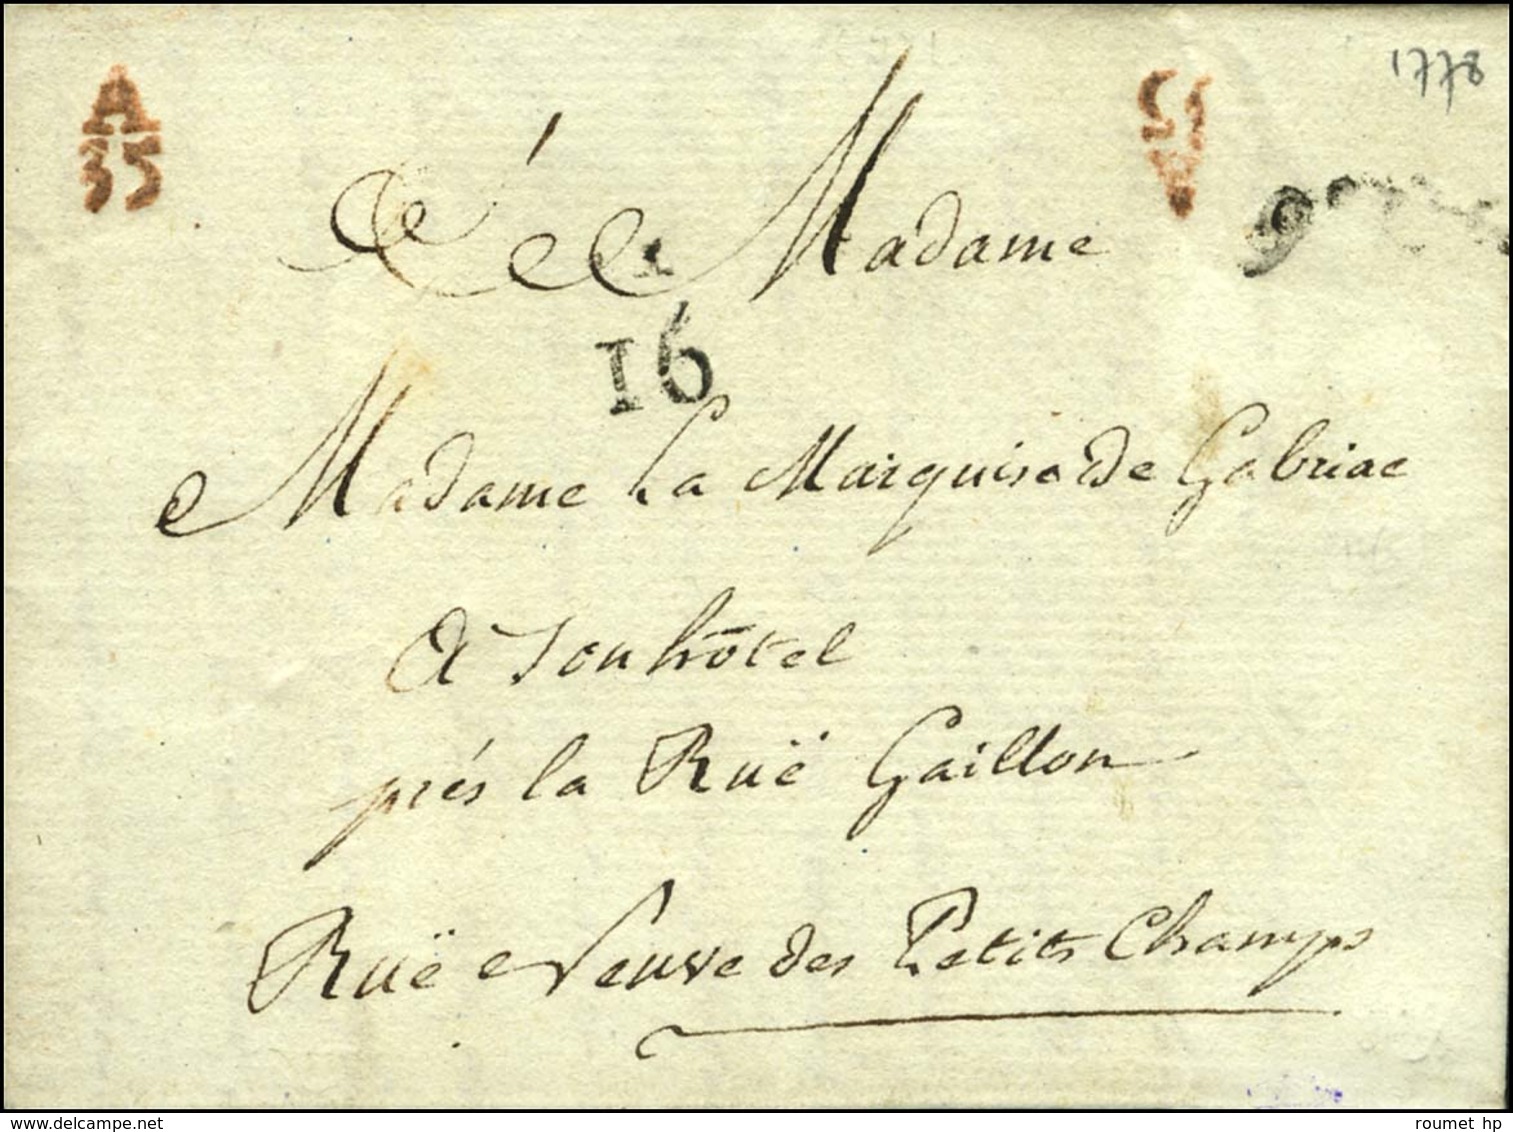 1778
A
35
A Madame
16
Madame La Marquise de Gabriac
A Son hôtel
prés la Ruë Gaillon
Ruë Neuve des Petits Champs
www.delcampe.net
roumet hp